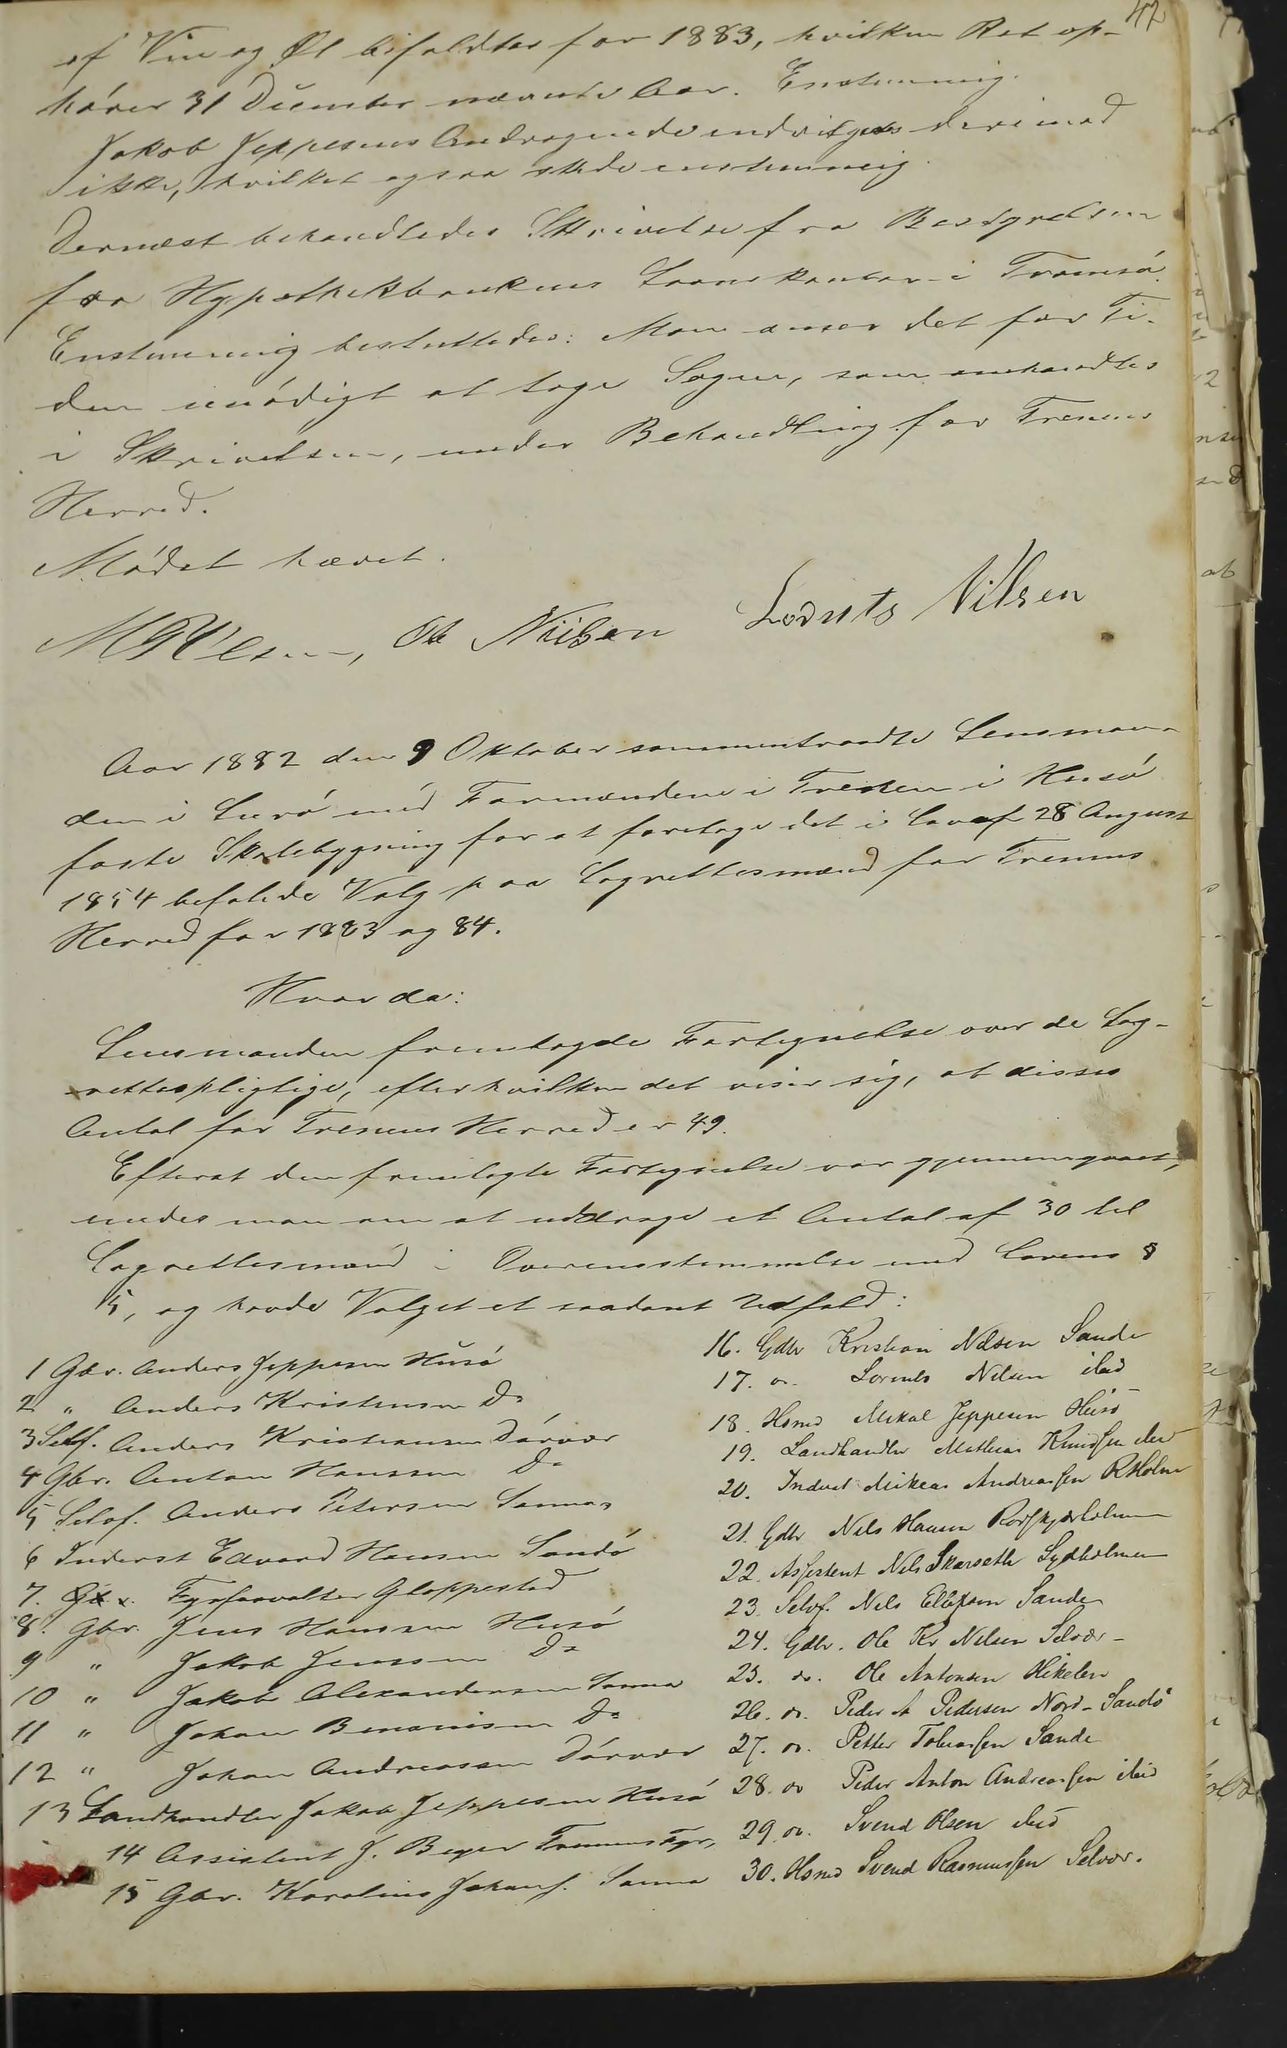 42
af Vin og Øl bifaldtes for 1883, hvilken Ret op-
hører 31 December nævnte Aar. Enstemmig.
Jakob Jeppesens Andragende indvilgedes derimod
ikke, hvilket ogsaa skede enstemmig.
Dernæst behandledes Skrivelse fra Bestyrelsen
for Hypothekbankens Laanekontor i Tromsø.
Enstemmig besluttedes: Man anser det for Ti-
den unødigt at tage Sagen, som omhandles
i Skrivelsen, under Behandling for Trænens
Herred.
Mødet hævet.
Ole Nilsen Lornts Nilsen
Aar 1882 den 9 Oktober sammentraadte Lensman-
den i Lurø med Formændene i Trænen i Husø
faste Skolebygning for at foretage det i Lov af 28 August
1854 befalede Valg paa Lagrettesmænd for Trænens
Herred for 1883 og 84.
Hvor da:
Lensmanden fremlagde Fortegnelse over de Lag-
rettespligtige, efter hvilken det viser sig, at disses
Antal for Trænens Herred er 49.
Efterat den fremlagte Fortegnelse var gjennemgaaet,
enedes man om at uddrage et Antal af 30 til
Lagrettesmænd i Overensstemmelse med Lovens §
5, og havde Valget et saadant Udfald:
1 Gbr. Anders Jeppesen Husø
2 " Anders Kristensen Do
3 Selvf. Anders Kristiansen Dørvær
4 Gbr. Anton Hanssen Do
5 Selvf. Anders Petersen Sanna
6 Inderst Edvard Hansen Sandø
7. Fyrforvalter Gloppestad
8. Gbr. Jens Hanssen Husø
9 " Jakob Jenssen Do
10 " Jakob Alexandersen Sanna
11 " Johan Benonisen Do
12 " Johan Andreassen Dørvær
13 Landhandler Jakob Jeppesen Husø
14 Assistent J. Beyer Trænens Fyr,
15 Gbr. Karolius Johans. Sanna
16. Gdbr Kristian Nilsen Sande
17. " Lornts Nilsen ibid
18. Hsmd Mikal Jeppesen Husø
19. Landhandler Mathias Knudsen ibid
20. Inderst Mikeas Andreassen RHolm
21. Gdbr Nils Hansen Rødskjærholmen
22. Assistent Nils Skarseth Sydholmen
23. Selvf. Nils Ellefsen Sande
24. Gdbr. Ole Kr Nilsen Selvær
25. " Ole Antonsen Hikelen
26. " Peder A Pedersen Nord-Sandø
27. " Petter Tobiassen Sande
28. " Peder Anton Andreassen ibid
29. " Svend Olsen ibid
30. Hsmd Svend Rasmussen Selvær.